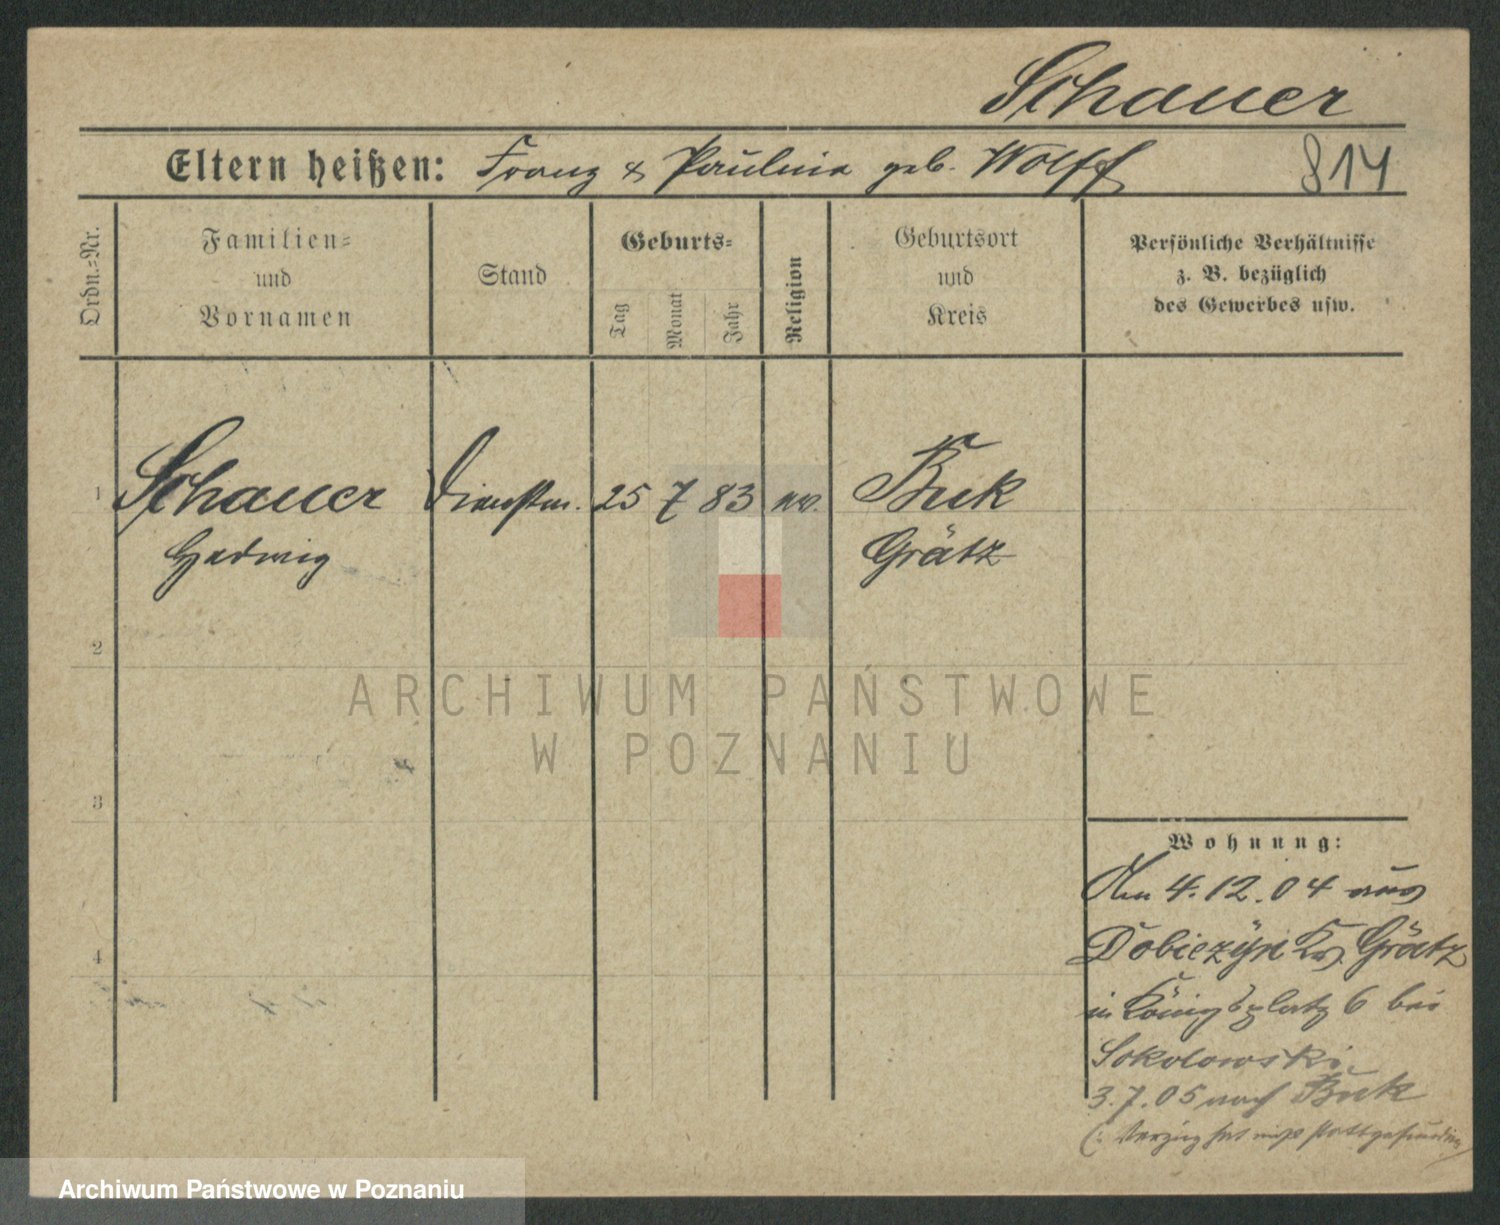 Schauer
Eltern heißen: Franz & Paulina geb. Wolff 814
Ordn.=Nr.
Familien= und Vornamen
Stand
Geburts=
Tag Monat Jahr
Religion
Geburtsort und Kreis
Persönliche Verhältnisse
z. B. bezüglich
des Gewerbes usw.
1 Schauer Dienstm. 25 7 83 ev. Buk
Hedwig Grätz
2
3
4
Wohnung:
Am 4.12.04 aus
Dobiezÿn Kr. Grätz
in Königsplatz 6 bei
Sokolowski
3.7.05 nach Buk
(: Verzug hat nicht stattgefunden
ARCHIWUM PAŃSTWOWE
W POZNANIU
Archiwum Państwowe w Poznaniu